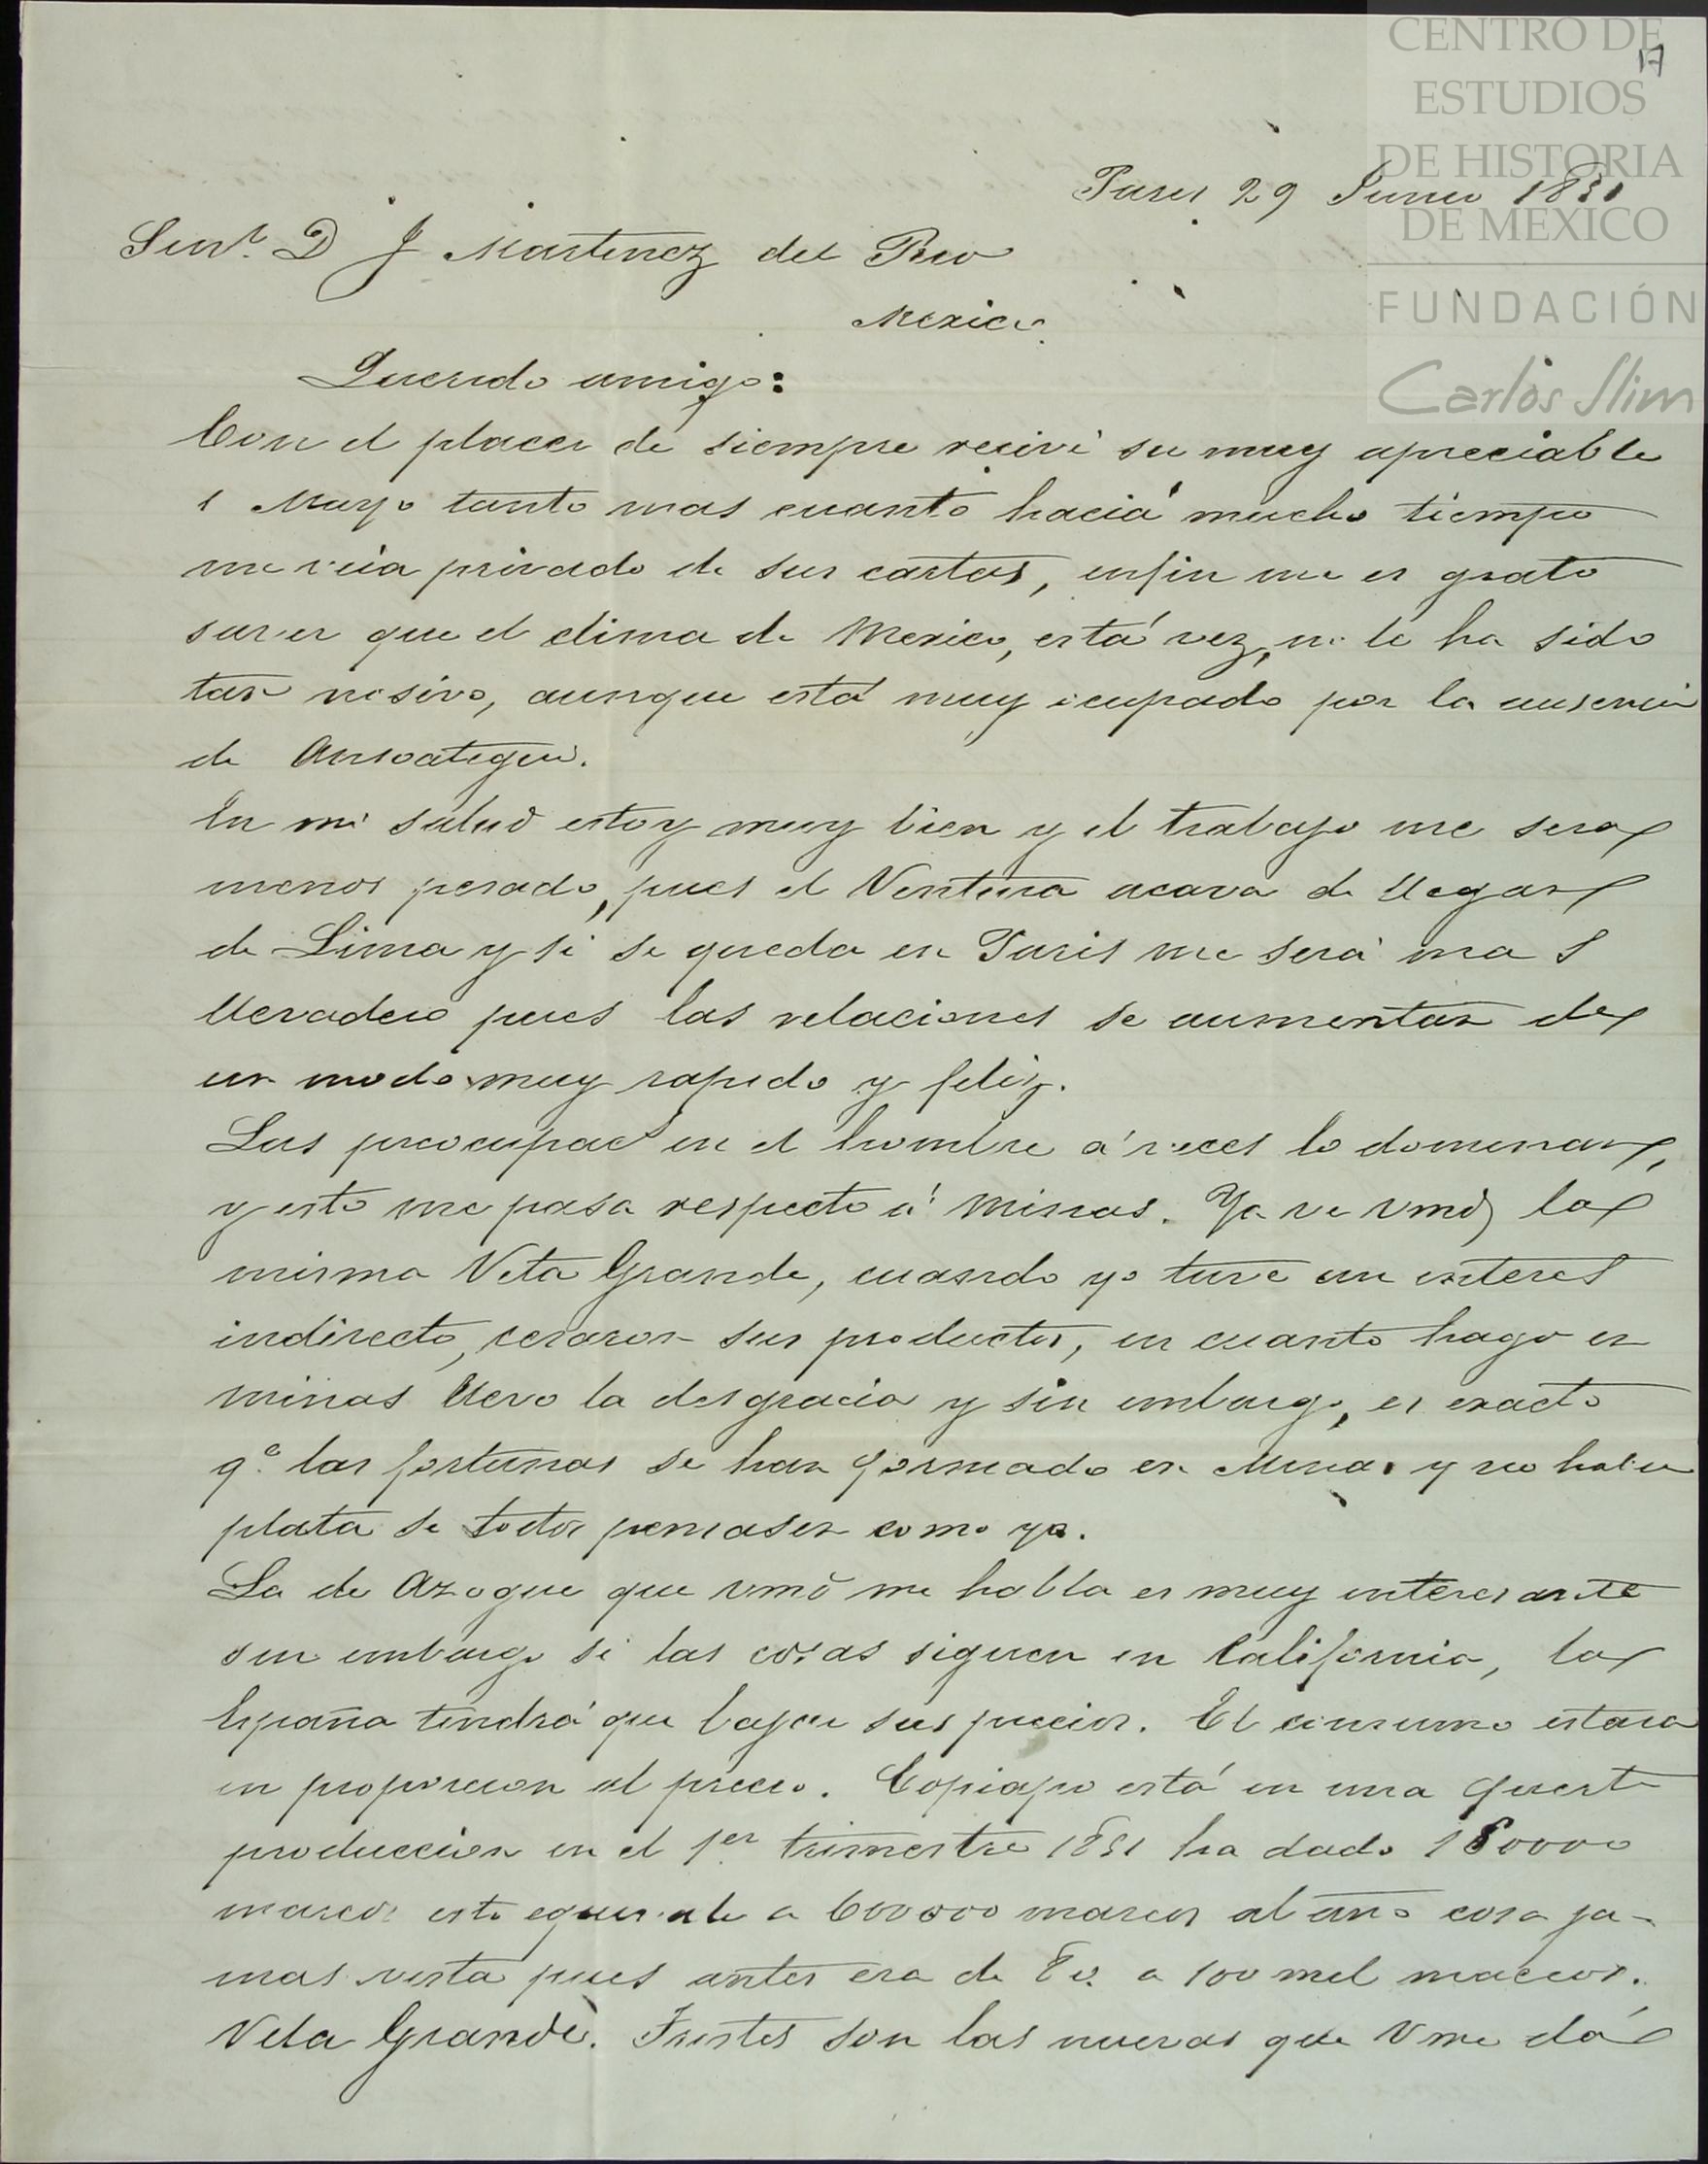 CENTRO DE
ESTUDIOS
DE HISTORIA
DE MEXICO
FUNDACIÓN
Carlos Slim
17
Paris 29 Junio 1851
Senr. D J Martinez del Rio
Mexico.
Querido amigo:
Con el placer de siempre recivi su muy apreciable
1 Mayo tanto mas cuanto haciá mucho tiempo
me veia privado de sus cartas, enfin me es grato
saver que el clima de Mexico, está vez, no le ha sido
tan nosivo, aunque está muy ocupado por la ausencia
de Ansoategui.
En mi salud estoy muy bien y el trabajo me sera
menos pesado, pues el Ventura acava de llegar
de Lima y si se queda en Paris me será mas
llevadero pues las relaciones se aumentan de
un modo muy rapido y feliz.
Las preocupac.s en el hombre á veces lo dominan,
y esto me pasa respecto á minas. Ya ve Vmd, la
misma Veta Grande, cuando yo tuve un interes
indirecto, cesaron sus productos, en cuanto hago en
minas llevo la desgracia y sin embargo, es exacto
q.e las fortunas se han formado en Minas y no habia
plata se todos pensasen como yo.
La de Azogue que vmd me habla es muy interesante
sin embargo si las cosas siguen en California, la
España tendrá que bajar sus precios. El consumo estara
en proporcion al precio. Copiapo está en una fuerte
produccion en el 1er trimestre 1851 ha dado 150000
marcos esto equivale a 600000 marcos al año cosa ja-
mas vista pues antes era de 80 a 100 mil marcos.
Veta Grande. Tristes son las nuevas que V me dá